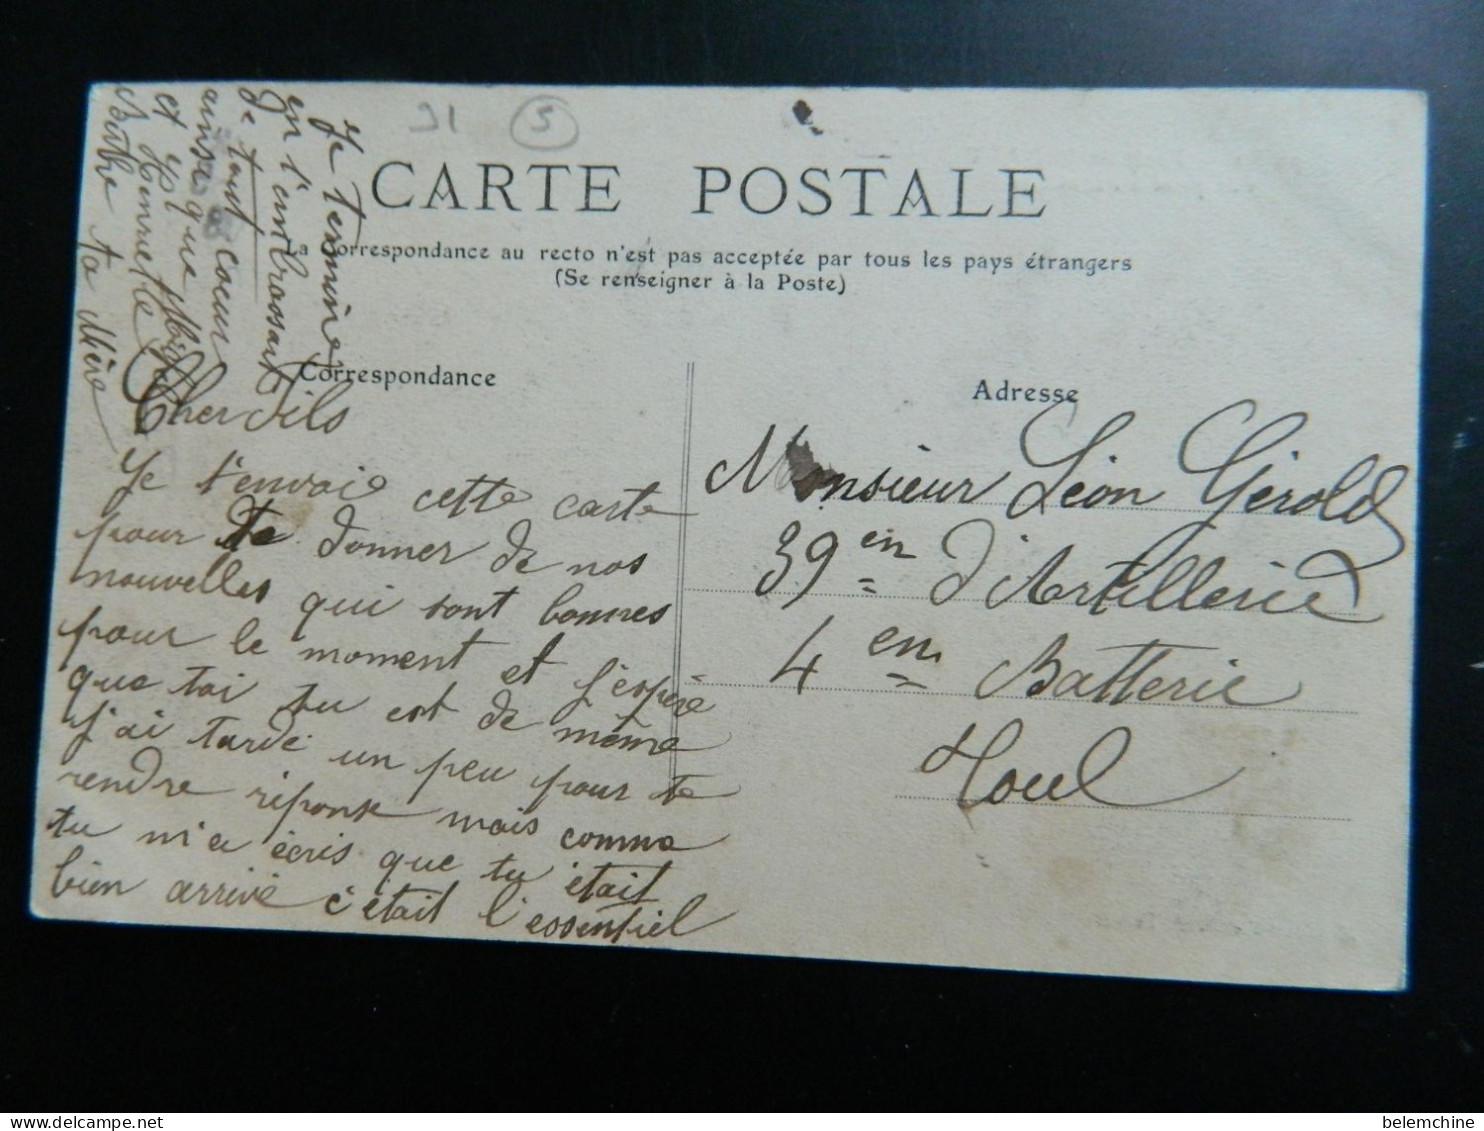 31 5
CARTE POSTALE
La Correspondance au recto n'est pas acceptée par tous les pays étrangers
(Se renseigner à la Poste)
Correspondance
Cher Fils
Je t'envoie cette carte
pour te donner de nos
nouvelles qui sont bonnes
pour le moment et j'espère
que toi tu est de même
j'ai tardé un peu pour te
rendre réponse mais comme
tu m'a écris que tu était
bien arrivé c'était l'essentiel
Je termine
en t'embrassant
de tout coeur
ainsi que
et Henriette
Berthe ta Mère
Adresse
Monsieur Léon Gérold
39 en d'Artillerie
4 em Batterie
Toul
belemchine